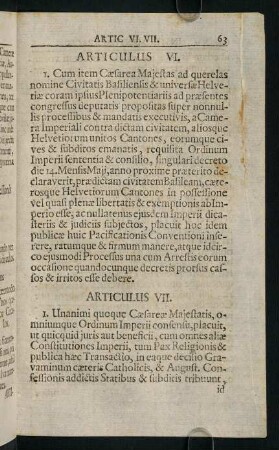 ARTIC VI. VII. 63
ARTICULUS VI.
1. Cum item Cæsarea Majestas ad querelas
nomine Civitatis Basiliensis & universæ Helve-
tiæ coram ipsius Plenipotentiariis ad præsentes
congressus deputatis propositas super nonnul-
lis processibus & mandatis executivis, a Came-
ra Imperiali contra dictam civitatem, aliosque
Helvetiorum unitos Cantones, eorumque ci-
ves & subditos emanatis, requisita Ordinum
Imperii sententia & consilio, singulari decreto
die 14. Mensis Maji, anno proxime præterito de-
claraverit, prædictam civitatem Basileam, cæte-
rosque Helvetiorum Cantones in possessione
vel quasi plenæ libertatis & exemptionis ab Im-
perio esse, ac nullatenus ejusdem Imperii dica-
steriis & judiciis subjectos, placuit hoc idem
publicæ huic Pacificationis Conventioni inse-
rere, ratumque & firmum manere, atque idcir-
co ejusmodi Processus una cum Arrestis eorum
occasione quandocunque decretis prorsus cas-
sos & irritos esse debere.
ARTICULUS VII.
1. Unanimi quoque Cæsareæ Majestatis, o-
mniumque Ordinum Imperii consensu, placuit,
ut quicquid juris aut beneficii, cum omnes aliæ
Constitutiones Imperii, tum Pax Religionis &
publica hæc Transactio, in eaque decisio Gra-
vaminum cæteris Catholicis, & August. Con-
fessionis addictis Statibus & subditis tribuunt,
id